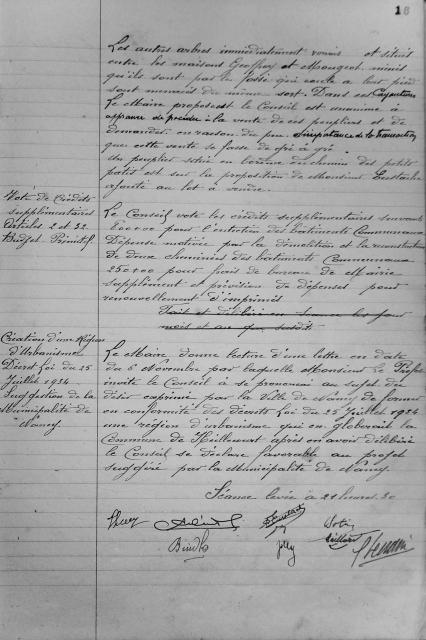 18
Les autres arbres immédiatement voisins et situés
entre les maisons Geoffroy et Mougeot minés
qu'ils sont par le fossé qui coule à leur pied
sont menacés du même sort. Dans ces conjonctures
le Maire proposant le Conseil est unanime à
la vente de ces peupliers et de
demander en raison du peu d'importance de la transaction
que cette vente se fasse de gré à gré.
Un peuplier situé en bordure du chemin des petits
patis est sur la proposition de Monsieur Eustache
ajouté au lot à vendre.
Vote de Crédits
supplémentaires
Articles 2 et 32
Budget Primitif
Le Conseil vote les crédits supplémentaires suivants
600 00 pour l'entretien des bâtiments Communaux
Dépense motivée par la démolition et la reconstruction
de deux cheminées des bâtiments Communaux
250 00 pour frais de bureau de Mairie
supplément et prévision de dépenses pour
renouvellement d'imprimés
Fait et délibéré en séance les jour
mois et an que susdits
Création d'une Région
d'Urbanisme
Décret Loi du 25
Juillet 1934
Suggestion de la
Municipalité de
Nancy
Le Maire donne lecture d'une lettre en date
du 6 Novembre par laquelle Monsieur le Préfet
invite le Conseil à se prononcer au sujet du
désir exprimé par la Ville de Nancy de former
en conformité des décrets Loi du 25 Juillet 1934
une région d'urbanisme qui engloberait la
Commune de Heillecourt après en avoir délibéré
le Conseil se déclare favorable au projet
suggéré par la Municipalité de Nancy
Séance levée à 21 heures 30